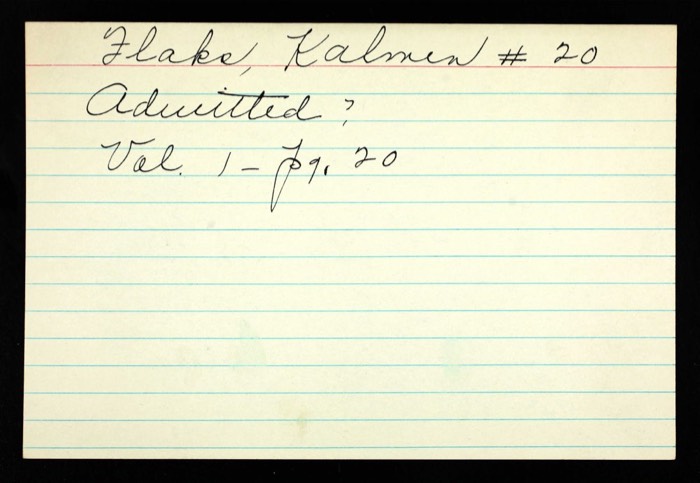 Flaks, Kalmen # 20
Admitted ?
Vol. 1 - pg. 20